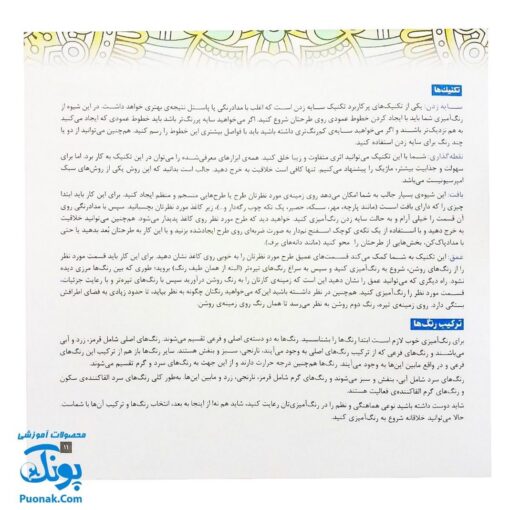 تکنیک‌ها
سـایه زدن: یکی از تکنیک‌های پرکاربرد تکنیک سایه زدن است که اغلب با مدادرنگی یا پاستل نتیجه‌ی بهتری خواهد داشت. در این شیوه از
رنگ‌آمیزی شما باید با ایجاد کردن خطوط عمودی روی طرحتان شروع کنید. اگر می‌خواهید سایه پررنگ‌تر باشد باید خطوط عمودی که ایجاد می‌کنید
به هم نزدیک‌تر باشند و اگر می‌خواهید سایه‌ی کم‌رنگ‌تری داشته باشید باید با فواصل بیشتری این خطوط را رسم کنید. هم‌چنین می‌توانید از دو یا
چند رنگ برای سایه زدن استفاده کنید.
نقطه‌گذاری: شـما با این تکنیک می‌توانید اثری متفاوت و زیبا خلق کنید. همه‌ی ابزارهای معرفی‌شده را می‌توان در این تکنیک به کار برد. اما برای
سهولت و جذابیت بیشتر، ماژیک را پیشنهاد می‌کنیم. تنها کافی است خلاقیت به خرج دهید. جالب است بدانید که این روش یکی از روش‌های سبک
امپرسیونیست می‌باشد.
بافت: این شیوه‌ی بسیار جالب به شما امکان می‌دهد روی زمینه‌ی مورد نظرتان طرح یا طرح‌هایی منسجم و منظم ایجاد کنید. برای این کار باید ابتدا
چیزی را که دارای بافت اسـت (مانند پارچه، مهر، سکه، حصیر، یک تکه چوب رگه‌دار و...)، زیر کاغذ مورد نظرتان بچسبانید. سپس با مدادرنگی روی
آن قسمت را خیلی آرام و به حالت سایه زدن رنگ‌آمیزی کنید. خواهید دید که طرح مورد نظر روی کاغذ پدیدار می‌شود. هم‌چنین می‌توانید خلاقیت
به خرج دهید و با اسـتفاده از یک تکه‌ی کوچک اسفنج نم‌دار به صورت ضربه‌ای روی طرح ایجادشده بزنید و با این کار به طرحتان بُعد بدهید یا حتی
با مدادپاک‌کن، بخش‌هایی از طرحتان را محو کنید (مانند دانه‌های برف).
عمق: این تکنیک به شما کمک می‌کند قسمت‌های عمیق طرح مورد نظرتان را به خوبی روی کاغذ نشان دهید. برای این کار باید قسمت مورد نظر
را از رنگ‌های روشن، شروع به رنگ‌آمیزی کنید و سپس به سراغ رنگ‌های تیره‌تر (البته از همان طیف رنگ) بروید؛ طوری که بین رنگ‌ها مرزی دیده
نشود. راه دیگری که می‌توانید عمق را نشان دهید این است که زمینه‌ی کارتان را به رنگ روشن درآورید سپس با رنگ‌های تیره‌تر و با رعایت جزئیات،
قسمت مورد نظر را رنگ‌آمیزی کنید. هم‌چنین در نظر داشته باشید این‌که می‌خواهید رنگتان چگونه به نظر بیاید، تا حدود زیادی به فضای اطرافش
بستگی دارد. روی زمینه‌ی تیره، رنگ دوم روشن به نظر می‌رسد تا همان رنگ روی زمینه‌ی روشن.
ترکیب رنگ‌ها
برای رنگ‌آمیزی خوب لازم است ابتدا رنگ‌ها را بشناسید. رنگ‌ها به دو دسته‌ی اصلی و فرعی تقسیم می‌شوند. رنگ‌های اصلی شامل قرمز، زرد و آبی
می‌باشند و رنگ‌های فرعی که از ترکیب رنگ‌های اصلی به وجود می‌آیند، نارنجی، سبز و بنفش هستند. سایر رنگ‌ها باز هم از ترکیب این رنگ‌های
فرعی و در واقع مابین این‌ها به وجود می‌آیند. رنگ‌ها هم‌چنین درجه حرارت دارند و از این جهت به رنگ‌های سرد و گرم تقسیم می‌شوند.
رنگ‌های سرد شامل آبی، بنفش و سبز می‌شوند و رنگ‌های گرم شامل قرمز، نارنجی، زرد و مابین این‌ها به‌طور کلی رنگ‌های سرد القاکننده‌ی سکون
و رنگ‌های گرم القاکننده‌ی فعالیت هستند.
شاید دوست داشته باشید نوعی هماهنگی و نظم را در رنگ‌آمیزی‌تان رعایت کنید، شاید هم نه! از اینجا به بعد، انتخاب رنگ‌ها و ترکیب آن‌ها با شماست.
حالا می‌توانید خلاقانه شروع به رنگ‌آمیزی کنید.
۱۱
محصولات آموزشی
پونک
Puonak.Com